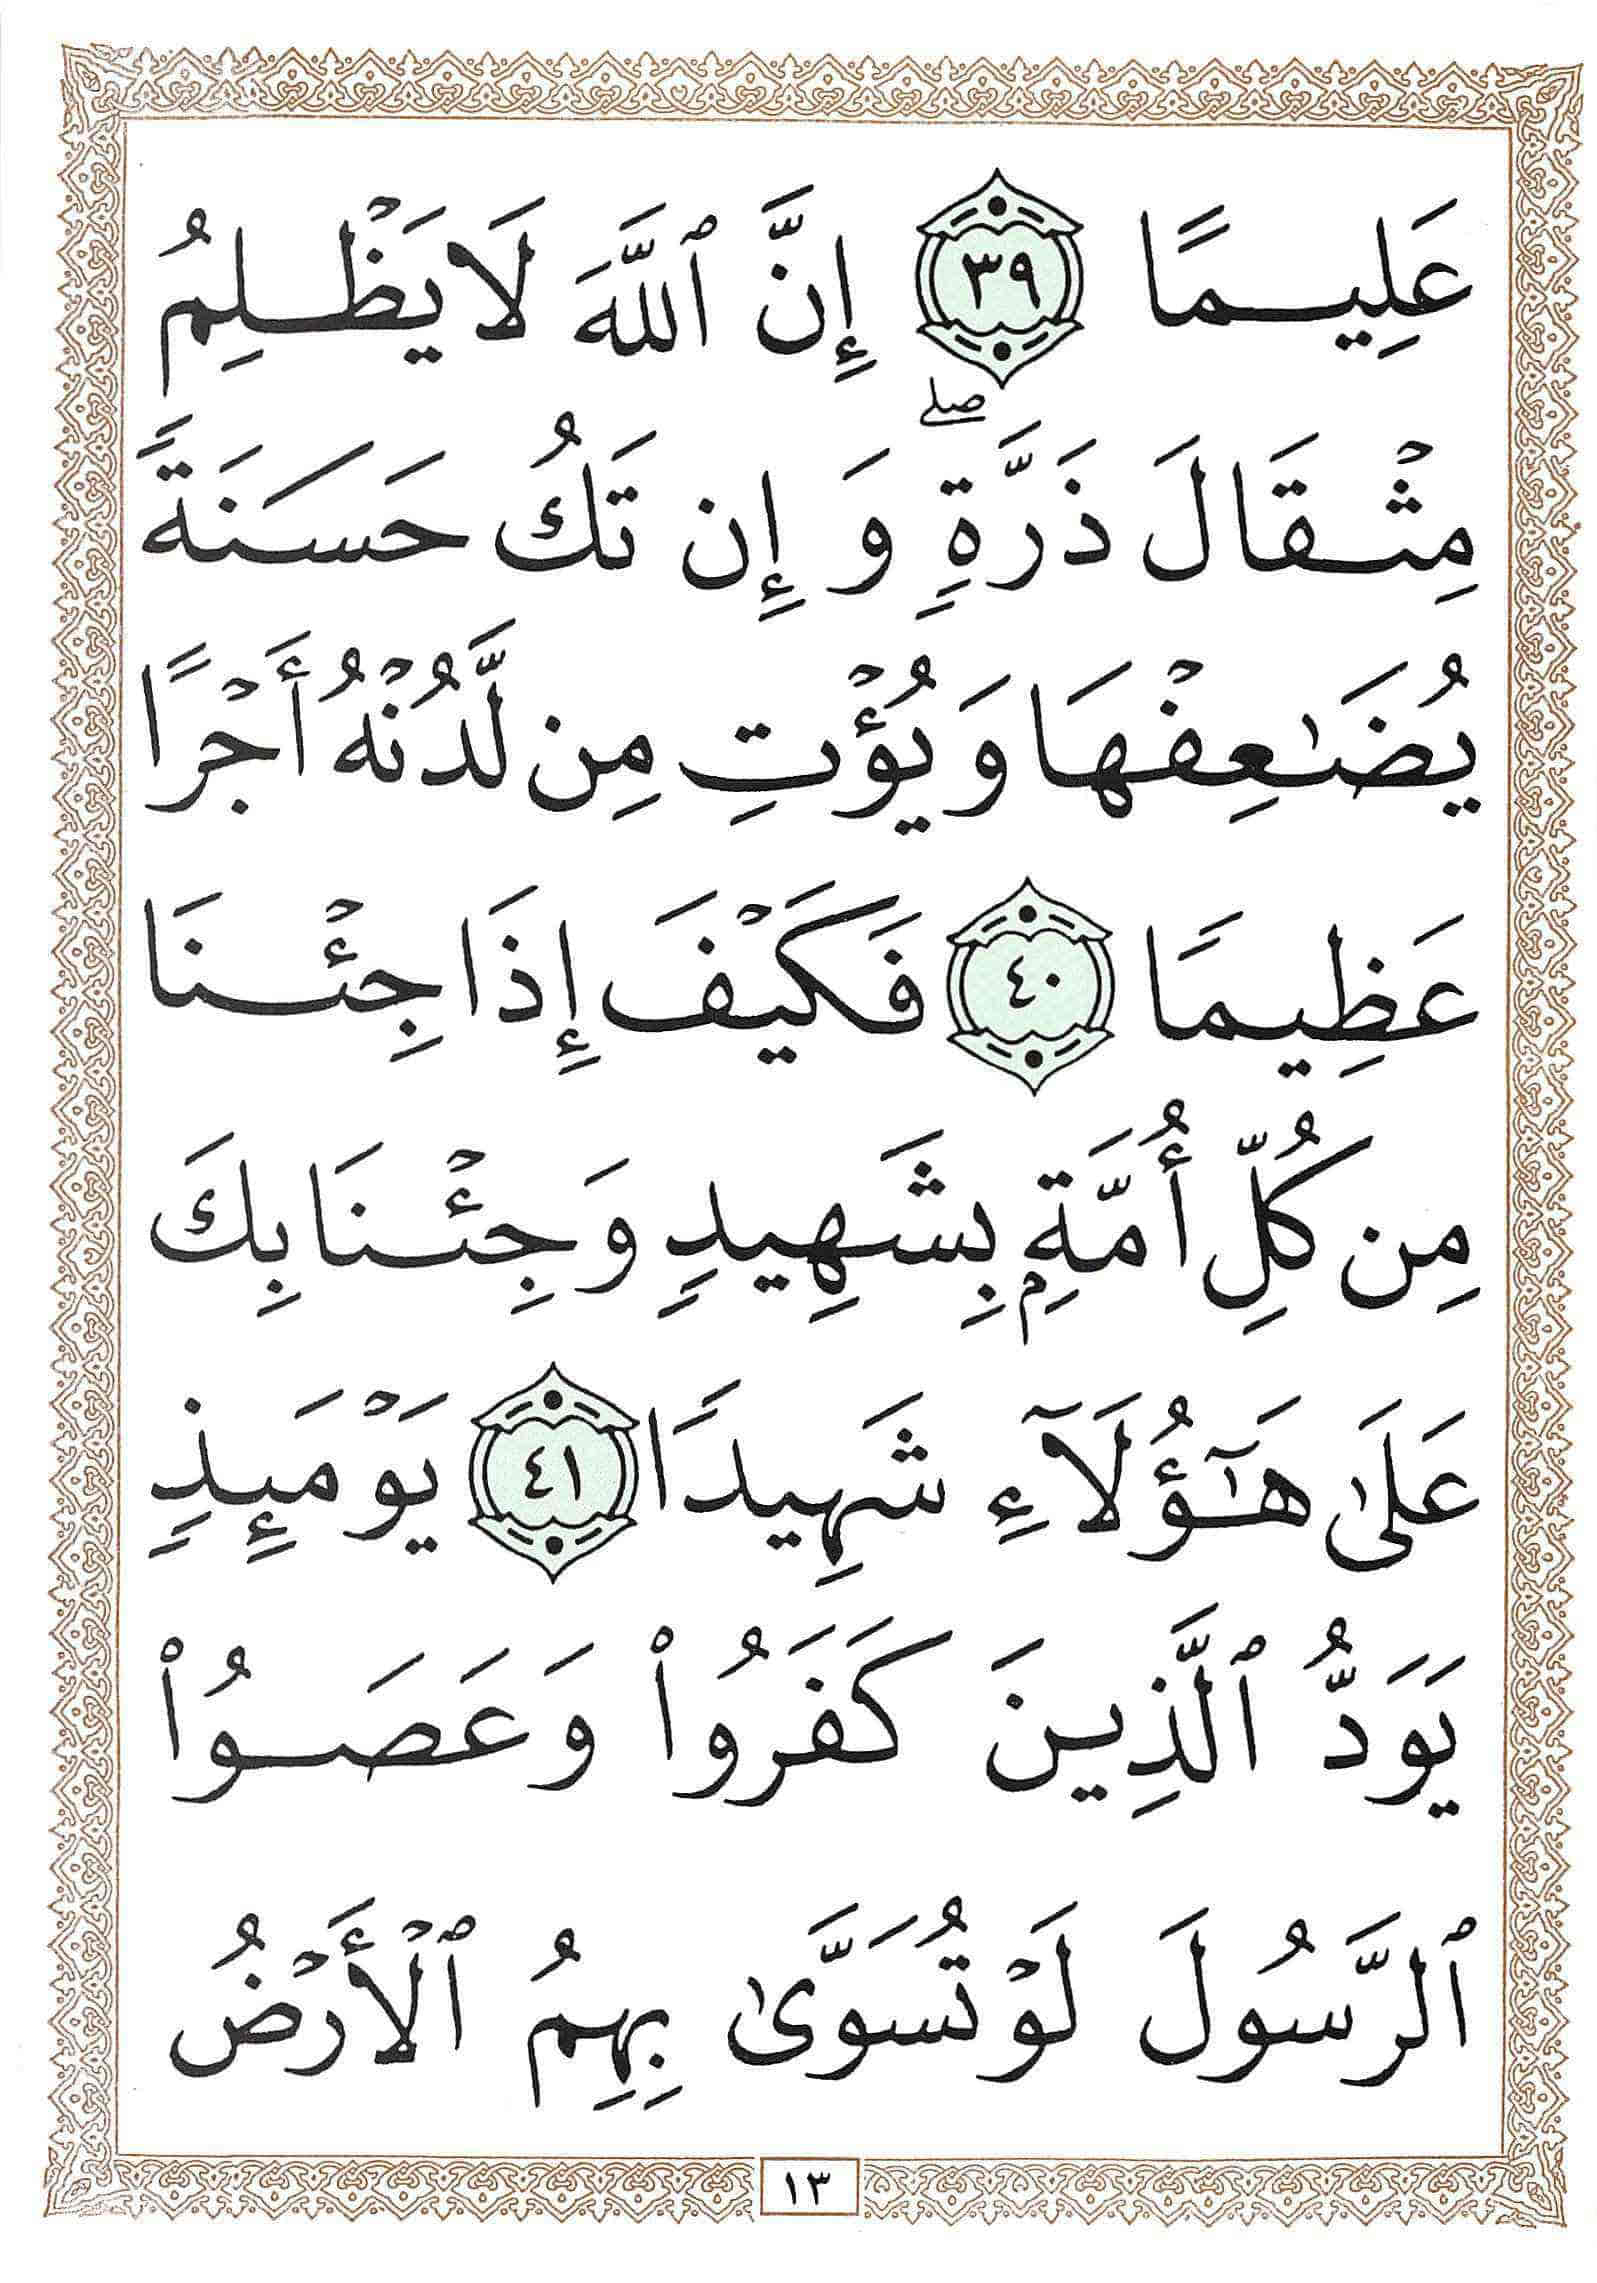 عَلِيمًا ٣٩ إِنَّ ٱللَّهَ لَا يَظْلِمُ
مِثْقَالَ ذَرَّةٍ ۖ وَإِن تَكُ حَسَنَةً
يُضَٰعِفْهَا وَيُؤْتِ مِن لَّدُنْهُ أَجْرًا
عَظِيمًا ٤٠ فَكَيْفَ إِذَا جِئْنَا
مِن كُلِّ أُمَّةٍۭ بِشَهِيدٍ وَجِئْنَا بِكَ
عَلَىٰ هَٰٓؤُلَآءِ شَهِيدًا ٤١ يَوْمَئِذٍ
يَوَدُّ ٱلَّذِينَ كَفَرُوا۟ وَعَصَوُا۟
ٱلرَّسُولَ لَوْ تُسَوَّىٰ بِهِمُ ٱلْأَرْضُ
١٣